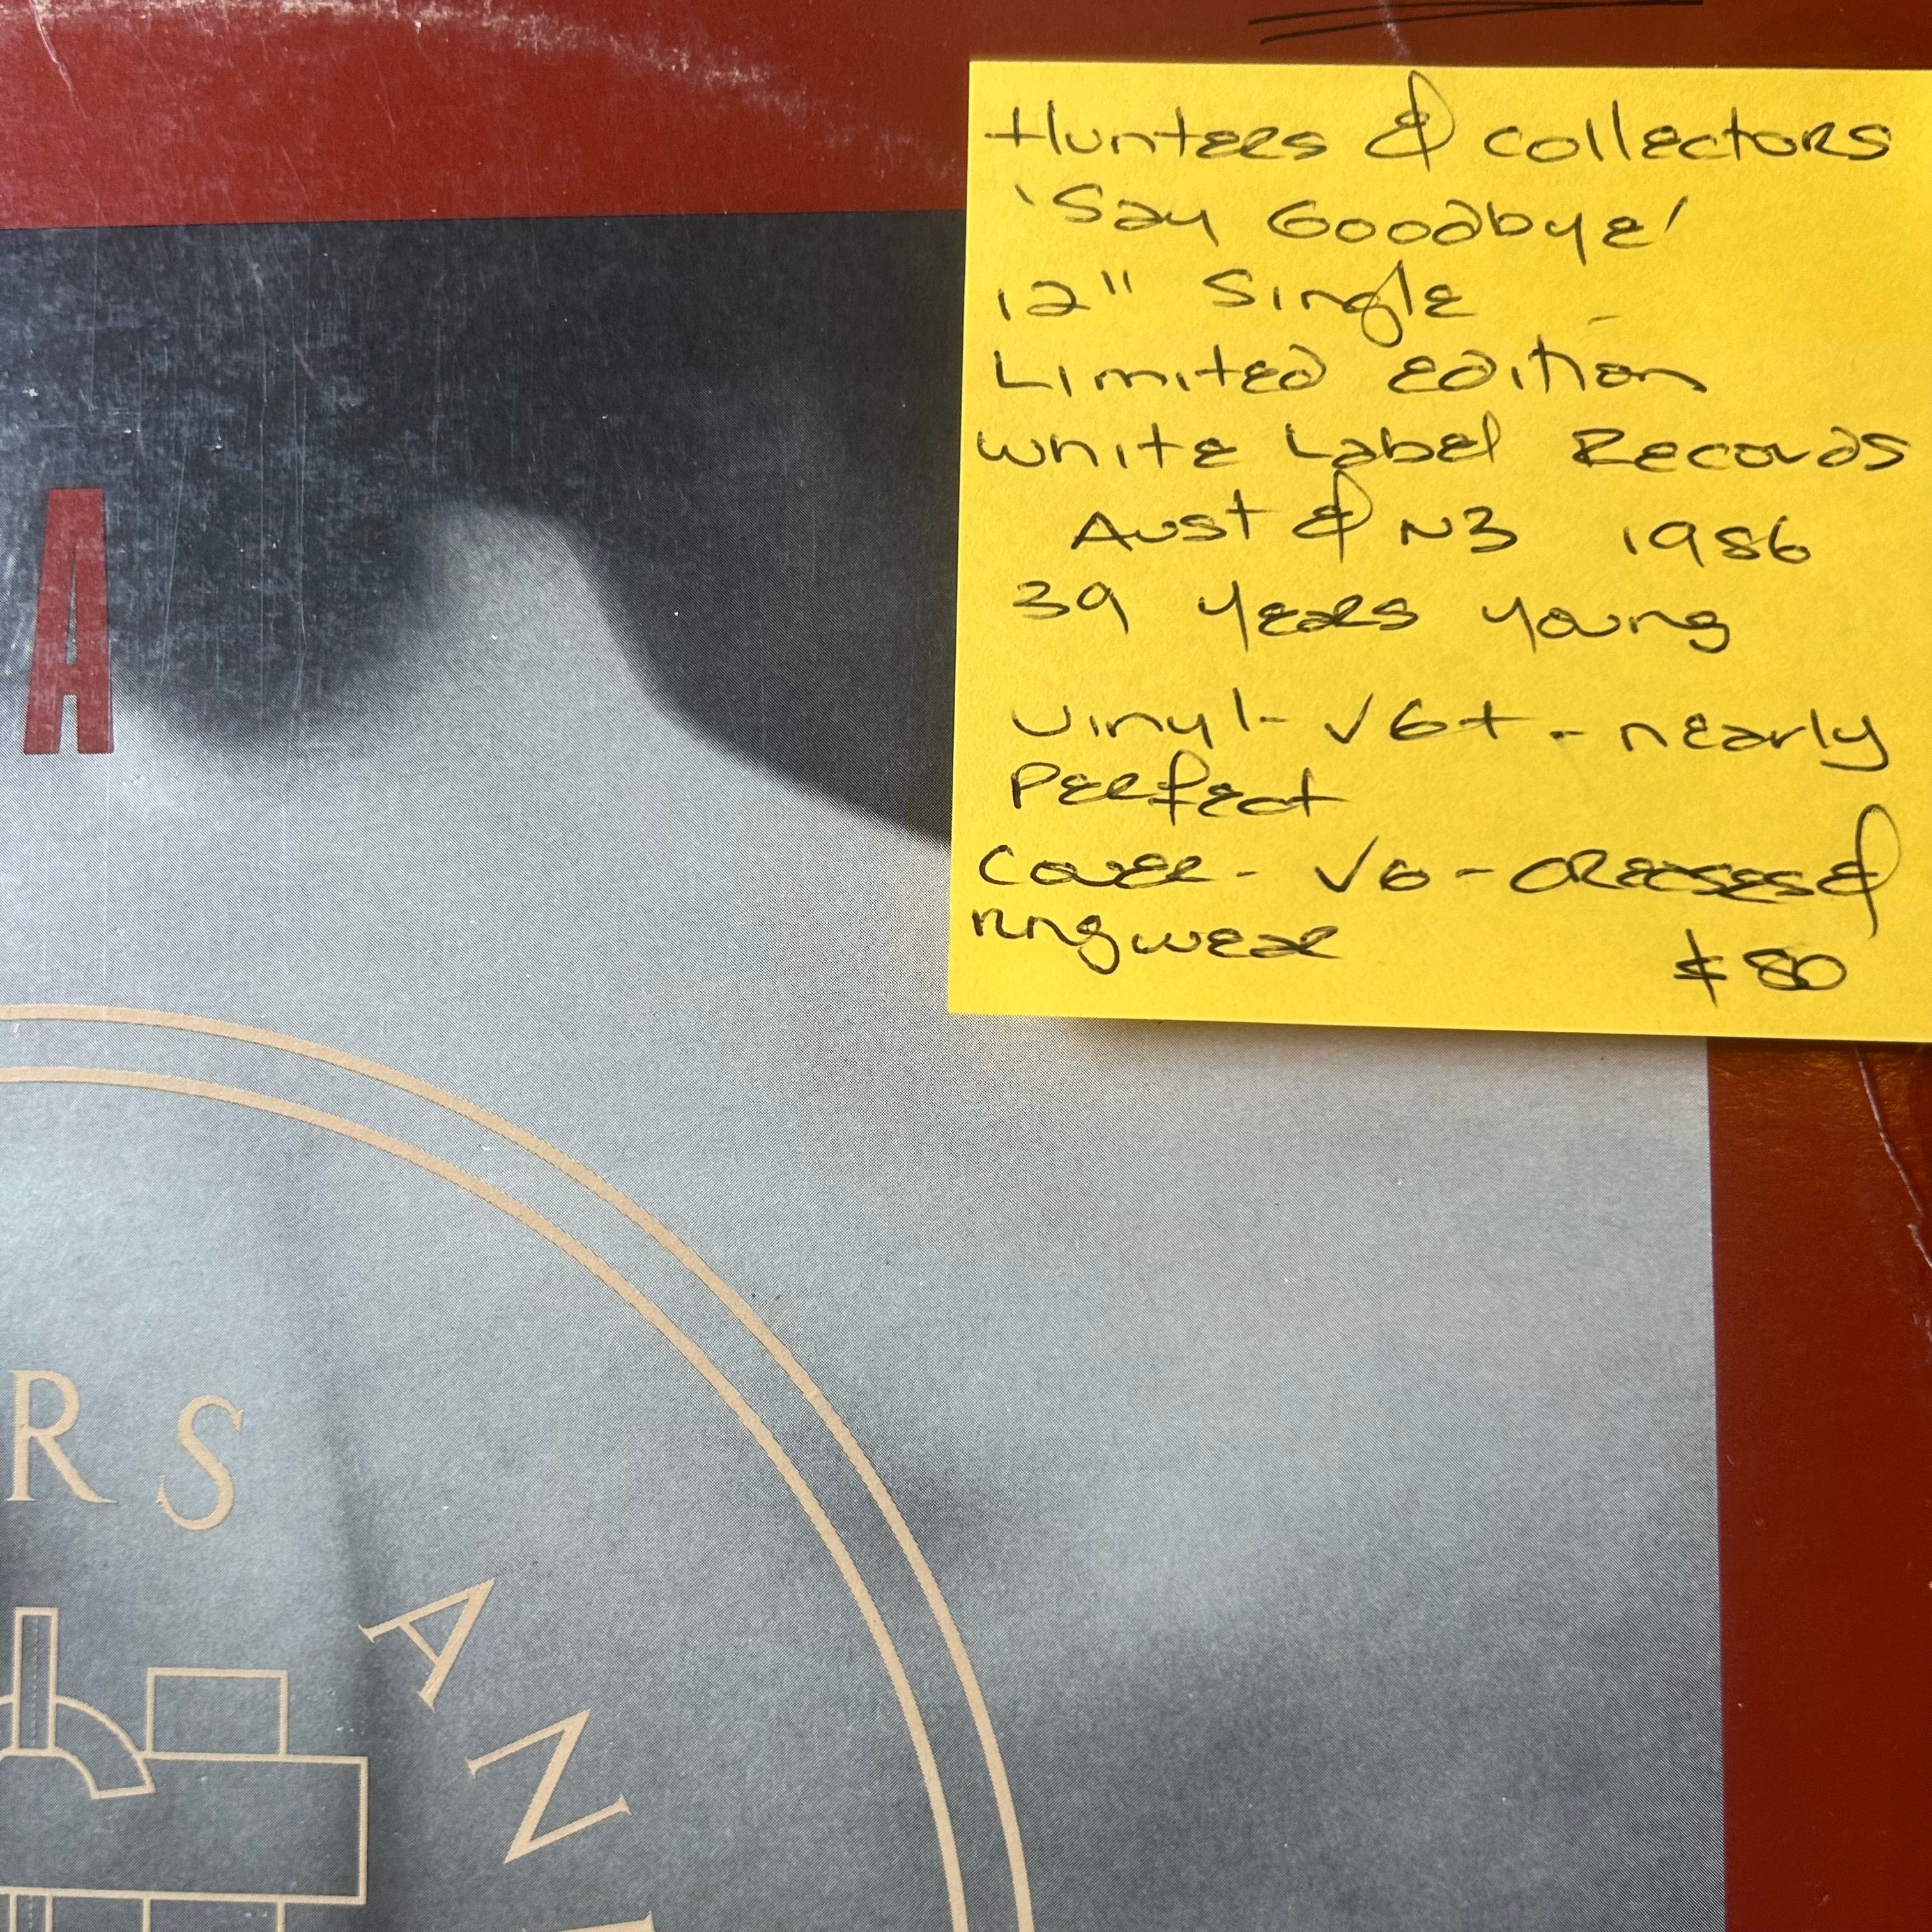 Hunters & collectors
'Say Goodbye'
12" Single
Limited edition
White Label Records
Aust & NZ 1986
39 years young
Vinyl - VG+ - nearly
perfect
Cover - VG - creases &
ringwear
$80
A
RS
AN